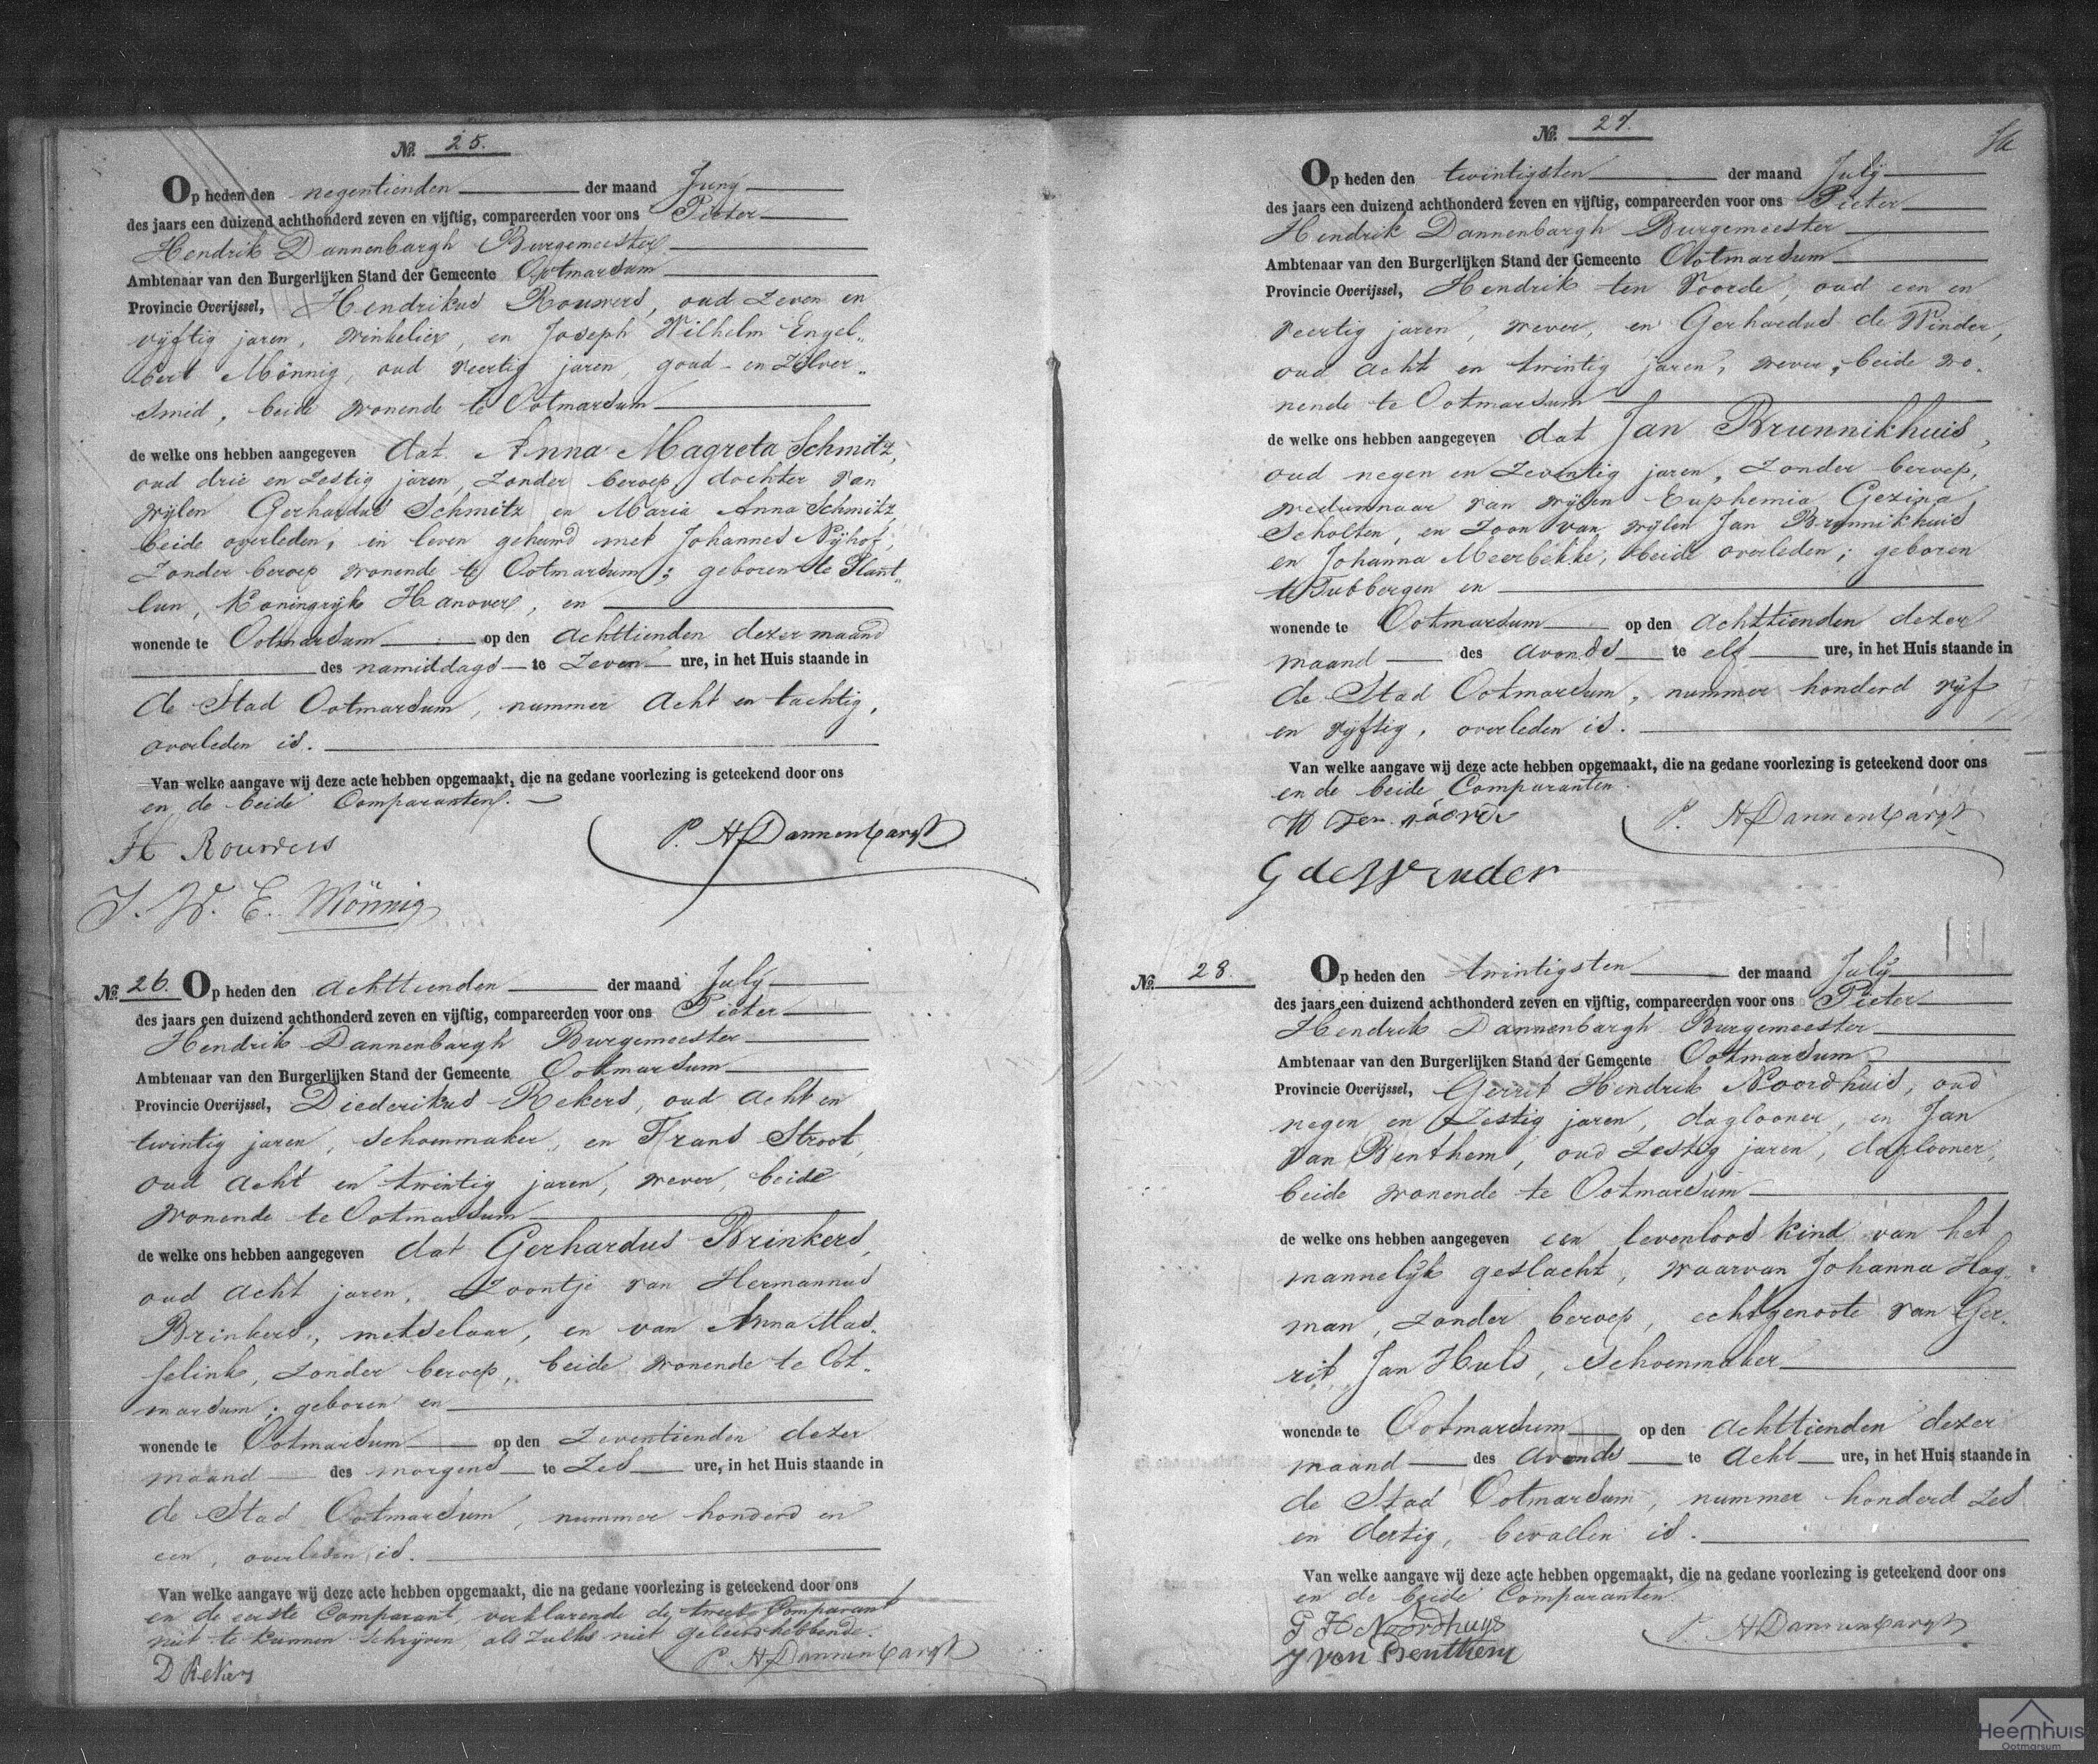 №. 25.
Op heden den negentienden der maand Juny
des jaars een duizend achthonderd zeven en vijftig, compareerden voor ons Pieter
Hendrik Dannenbargh Burgemeester
Ambtenaar van den Burgerlijken Stand der Gemeente Ootmarsum
Provincie Overijssel, Hendrikus Rouwers, oud zeven en
vijftig jaren, winkelier, en Joseph Wilhelm Engel„
bert Mönnig, oud veertig jaren, goud- en zilver„
smid, beide wonende te Ootmarsum
de welke ons hebben aangegeven dat Anna Magreta Schmitz,
oud drie en zestig jaren, zonder beroep, dochter van
wijlen Gerhardus Schmitz en Maria Anna Schmitz
beide overleden, in leven gehuwd met Johannes Nijhof,
zonder beroep wonende te Ootmarsum; geboren te Plant„
lun, Koningrijk Hanover, en
wonende te Ootmarsum op den achttienden dezer maand
des namiddags te zeven ure, in het Huis staande in
de Stad Ootmarsum, nummer acht en tachtig,
overleden is.
Van welke aangave wij deze acte hebben opgemaakt, die na gedane voorlezing is geteekend door ons
en de beide Comparanten.
H Rouwers
P. H Dannenbargh
J. W. E. Mönnig
№. 26. Op heden den achttienden der maand July
des jaars een duizend achthonderd zeven en vijftig, compareerden voor ons Pieter
Hendrik Dannenbargh Burgemeester
Ambtenaar van den Burgerlijken Stand der Gemeente Ootmarsum
Provincie Overijssel, Diederikus Rekers, oud acht en
twintig jaren, schoenmaker, en Frans Stroot,
oud acht en twintig jaren, wever, beide
wonende te Ootmarsum
de welke ons hebben aangegeven dat Gerhardus Brinkers,
oud acht jaren, zoontje van Hermannus
Brinkers, metselaar, en van Anna Mas„
selink, zonder beroep, beide wonende te Oot„
marsum; geboren en
wonende te Ootmarsum op den zeventienden dezer
maand des morgens te zes ure, in het Huis staande in
de Stad Ootmarsum, nummer honderd en
een, overleden is.
Van welke aangave wij deze acte hebben opgemaakt, die na gedane voorlezing is geteekend door ons
en de eerste Comparant, verklarende de tweede Comparant
niet te kunnen schrijven, als zulks niet geleerd hebbende.
P. H Dannenbargh
D Rekers
№. 27.
Op heden den twintigsten der maand July
des jaars een duizend achthonderd zeven en vijftig, compareerden voor ons Pieter
Hendrik Dannenbargh Burgemeester
Ambtenaar van den Burgerlijken Stand der Gemeente Ootmarsum
Provincie Overijssel, Hendrik ten Voorde, oud een en
veertig jaren, wever, en Gerhardus de Winder,
oud acht en twintig jaren, wever, beide wo„
nende te Ootmarsum
de welke ons hebben aangegeven dat Jan Brunnikhuis,
oud negen en zeventig jaren, zonder beroep,
weduwnaar van wijlen Euphemia Gezina
Scholten, en zoon van wijlen Jan Brunnikhuis
en Johanna Meerbekke, beide overleden; geboren
te Tubbergen en
wonende te Ootmarsum op den achttienden dezer
maand des avonds te elf ure, in het Huis staande in
de Stad Ootmarsum, nummer honderd vijf
en vijftig, overleden is.
Van welke aangave wij deze acte hebben opgemaakt, die na gedane voorlezing is geteekend door ons
en de beide Comparanten.
H ten voorde
P. H Dannenbargh
G de Winder
№. 28. Op heden den twintigsten der maand July
des jaars een duizend achthonderd zeven en vijftig, compareerden voor ons Pieter
Hendrik Dannenbargh Burgemeester
Ambtenaar van den Burgerlijken Stand der Gemeente Ootmarsum
Provincie Overijssel, Gerrit Hendrik Noordhuis, oud
negen en zestig jaren, daglooner, en Jan
van Benthem, oud zestig jaren, daglooner,
beide wonende te Ootmarsum
de welke ons hebben aangegeven een levenloos kind van het
mannelijk geslacht, waarvan Johanna Hag„
man, zonder beroep, echtgenoote van Ger„
rit Jan Huls, schoenmaker
wonende te Ootmarsum op den achttienden dezer
maand des avonds te acht ure, in het Huis staande in
de Stad Ootmarsum, nummer honderd zes
en dertig, bevallen is.
Van welke aangave wij deze acte hebben opgemaakt, die na gedane voorlezing is geteekend door ons
en de beide Comparanten.
G H Noordhuys
P. H Dannenbargh
J van Benthem
Heemhuis
Ootmarsum